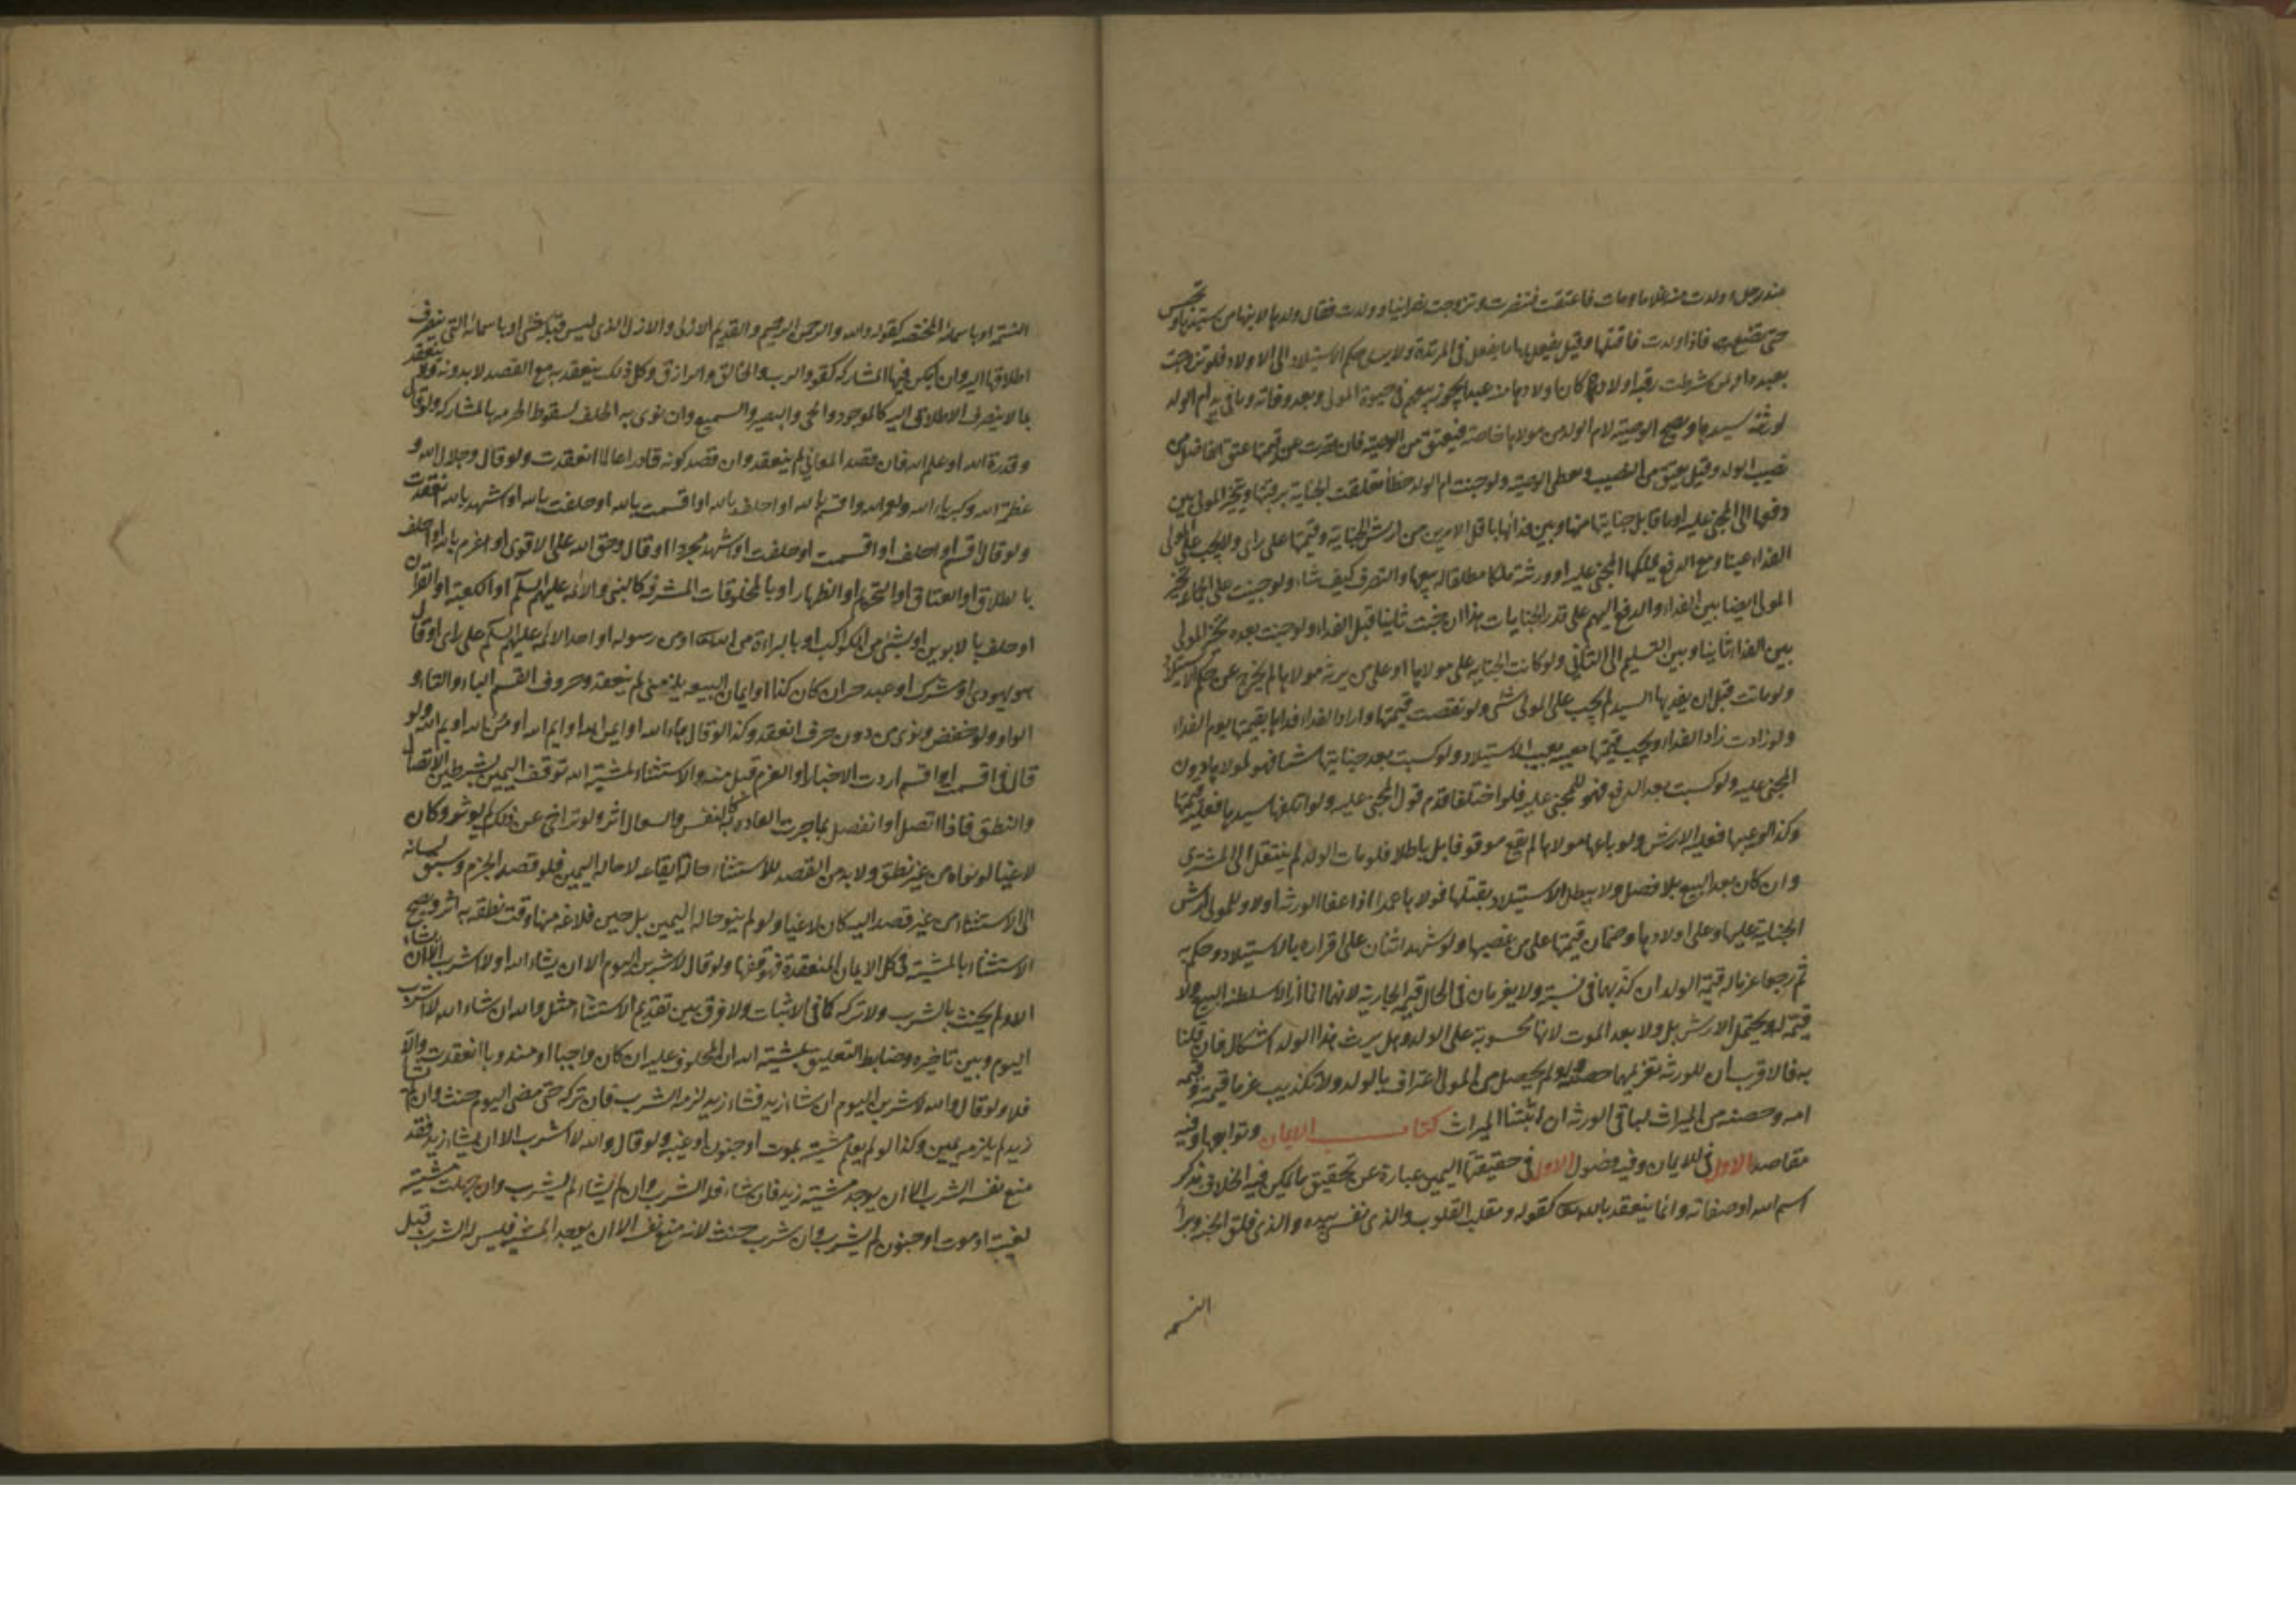 عند رجل وولدت منه غلاما ومات فاعتقت فتنصرت وتزوجت نصرانيا وولدت فقال ولدها لابنها من سيدها وتحبس
حتى تضع فاذا ولدت فاقتلها وقيل يفعل بها ما يفعل في المرتدة ولا يسري حكم الاستيلاد الى الاولاد فلو تزوجت
بعبد او شرطت رقية اولاده كان اولادها منه عبيدا يجوز بيعهم في حيوة المولى وبعد وفاته وباقي ام الولد
لورثة سيدها وتصح الوصية لام الولد من مولاها خاصة فتعتق من الوصية فان قصرت عن قيمتها عتق الفاضل من
نصيب الولد وقيل يعتق من النصيب وتعطى الوصية ولو جنت ام الولد خطأ تعلقت الجناية برقبتها ويتخير المولى بين
دفعها الى المجني عليه او ما قابل جنايتها منها وبين فدائها باقل الامرين من ارش الجناية وقيمتها على راى ولا يجب على المولى
الفداء عينا ومع الدفع يملكها المجني عليه او ورثته ملكا مطلقا له بيعها والتصرف كيف شاء ولو جنت على جماعة تخير
المولى ايضا بين الفداء والدفع اليهم على قدر الجنايات هذا ان جنت ثانيا قبل الفداء ولو جنت بعده تخير المولى
بين الفداء ثانيا وبين التسليم الى الثاني ولو كانت الجناية على مولاها او على من يرثه مولاها لم يخرج عن حكم الاستيلاد
ولو ماتت قبل ان يفديها السيد لم يجب على المولى شئ ولو نقصت قيمتها واراد الفداء فداها بقيمتها يوم الفداء
ولو زادت زاد الفداء ويجب قيمتها معيبة بعيب الاستيلاد ولو كسبت بعد جنايتها شيئا فهو لمولاها دون
المجني عليه ولو كسبت بعد الدفع فهو للمجني عليه فلو اختلفا قدم قول المجني عليه ولو اتلفها سيدها فعليه قيمتها
وكذا لو عيبها فعليه الارش ولو باعها مولاها لم يقع موقوفا بل باطلا فلو مات الولد لم ينتقل الى المشتري
وان كان بعد البيع بلا فصل ولا يبطل الاستيلاد بقتلها مولاها عمدا اذا عفا الورثة او لا وللمولى ارش
الجناية عليها وعلى اولادها وضمان قيمتها على من غصبها ولو شهد اثنان على اقراره بالاستيلاد وحكم به
ثم رجعا غرما له قيمة الولد ان كذبهما في نسبه ولا يغرمان في الحال قيمة الجارية لانهما انما ازالا سلطنة البيع ولا
قيمة له ويحتمل الارش بل ولا بعد الموت لانها محسوبة على الولد وهل يرث هذا الولد اشكال فان قلنا
به فالاقرب ان للورثة تغريمهما حصته ولو لم يحصل من المولى اعتراف بالولد ولا تكذيب غرما قيمته وقيمة
امه وحصته من الميراث لباقي الورثة ان اثبتنا الميراث كتاب الايمان وتوابعها وفيه
مقاصد الاول في الايمان وفيه فصول الاول في حقيقتها اليمين عبارة عن تحقيق ما يمكن فيه الخلاف بذكر
اسم الله او صفاته وانما ينعقد بالله تعالى كقوله ومقلب القلوب والذي نفسي بيده والذي فلق الحبة وبرأ
النسمه
النسمة او باسمائه المختصة كقوله والله والرحمن الرحيم والقديم الازلي والاول الذي ليس قبله شئ او باسمائه التي ينصرف
اطلاقها اليه وان امكن فيها المشاركة كقوله والرب والخالق والرازق وكل ذلك ينعقد به مع القصد لا بدونه ولا ينعقد
بما لا ينصرف الاطلاق اليه كالموجود والحي والبصير والسميع وان نوى به الحلف لسقوط الحرمة بالمشاركة ولو قال
وقدرة الله او علم الله فان قصد المعاني لم ينعقد وان قصد كونه قادرا عالما انعقدت ولو قال وجلال الله و
عظمة الله وكبرياء الله ولعمر الله واقسم بالله او احلف بالله او اقسمت بالله او حلفت بالله او اشهد بالله انعقدت
ولو قال اقسم او احلف او اقسمت او حلفت او اشهد مجردا او قال وحق الله على الاقوى او اعزم بالله او حلف
بالطلاق او العتاق او التحريم او الظهار او بالمخلوقات المشرفة كالنبي والائمة عليهم السلم او الكعبة او القران
او حلف بالابوين او بشئ من الكواكب او بالبراءة من الله تعالى او من رسوله او احد الائمة عليهم السلم على راى او قال
هو يهودى او مشرك او عبده حر ان كان كذا او ايمان البيعة يلزمنى لم ينعقد وحروف القسم الباء والتاء و
الواو ولو خفض ونوى من دون حرف انعقد وكذا لو قال ها الله او ايمن الله او ايم الله او من الله او م الله ولو
قال في اقسمت او اقسم اردت الاخبار او العزم قبل منه والاستثناء بمشية الله توقف اليمين بشرطين الاتصال
والنطق فاذا اتصل او انفصل بما جرت العادة به كالنفس والسعال اثر ولو تراخى عن ذلك لم يؤثر وكان
لاغيا لو نواه من غير نطق ولا بد من القصد للاستثناء حالة ايقاعه لا حالة اليمين فلو قصد الجزم وسبق لسانه
الى الاستثناء من غير قصد اليه كان لاغيا ولو لم ينو حالة اليمين بل حين فراغه منها وقت نطقه به اثر ويصح
الاستثناء بالمشية في كل الايمان المنعقدة فيوقفها ولو قال لاشربن اليوم الا ان يشاء الله او لا اشرب الا ان يشاء
الله لم يحنث بالشرب ولا تركه كما في الاثبات ولا فرق بين تقديم الاستثناء مثل والله ان شاء الله لا اشرب
اليوم وبين تاخيره وضابط التعليق بمشية الله ان المحلوف عليه ان كان واجبا او مندوبا انعقدت والا
فلا ولو قال والله لاشربن اليوم ان شاء زيد فشاء زيد لزمه الشرب فان تركه حتى مضى اليوم حنث وان لم يشأ
زيد لم يلزمه يمين وكذا لو لم يعلم مشيته بموت او جنون او غيبة ولو قال والله لا اشرب الا ان يشاء زيد فقد
منع نفسه الشرب الا ان يوجد مشية زيد فان شاء فله الشرب وان لم يشاء لم يشرب وان جهلت مشيته
لغيبة او موت او جنون لم يشرب وان شرب حنث لانه منع نفسه الا ان يوجد المشية فليس له الشرب قبل